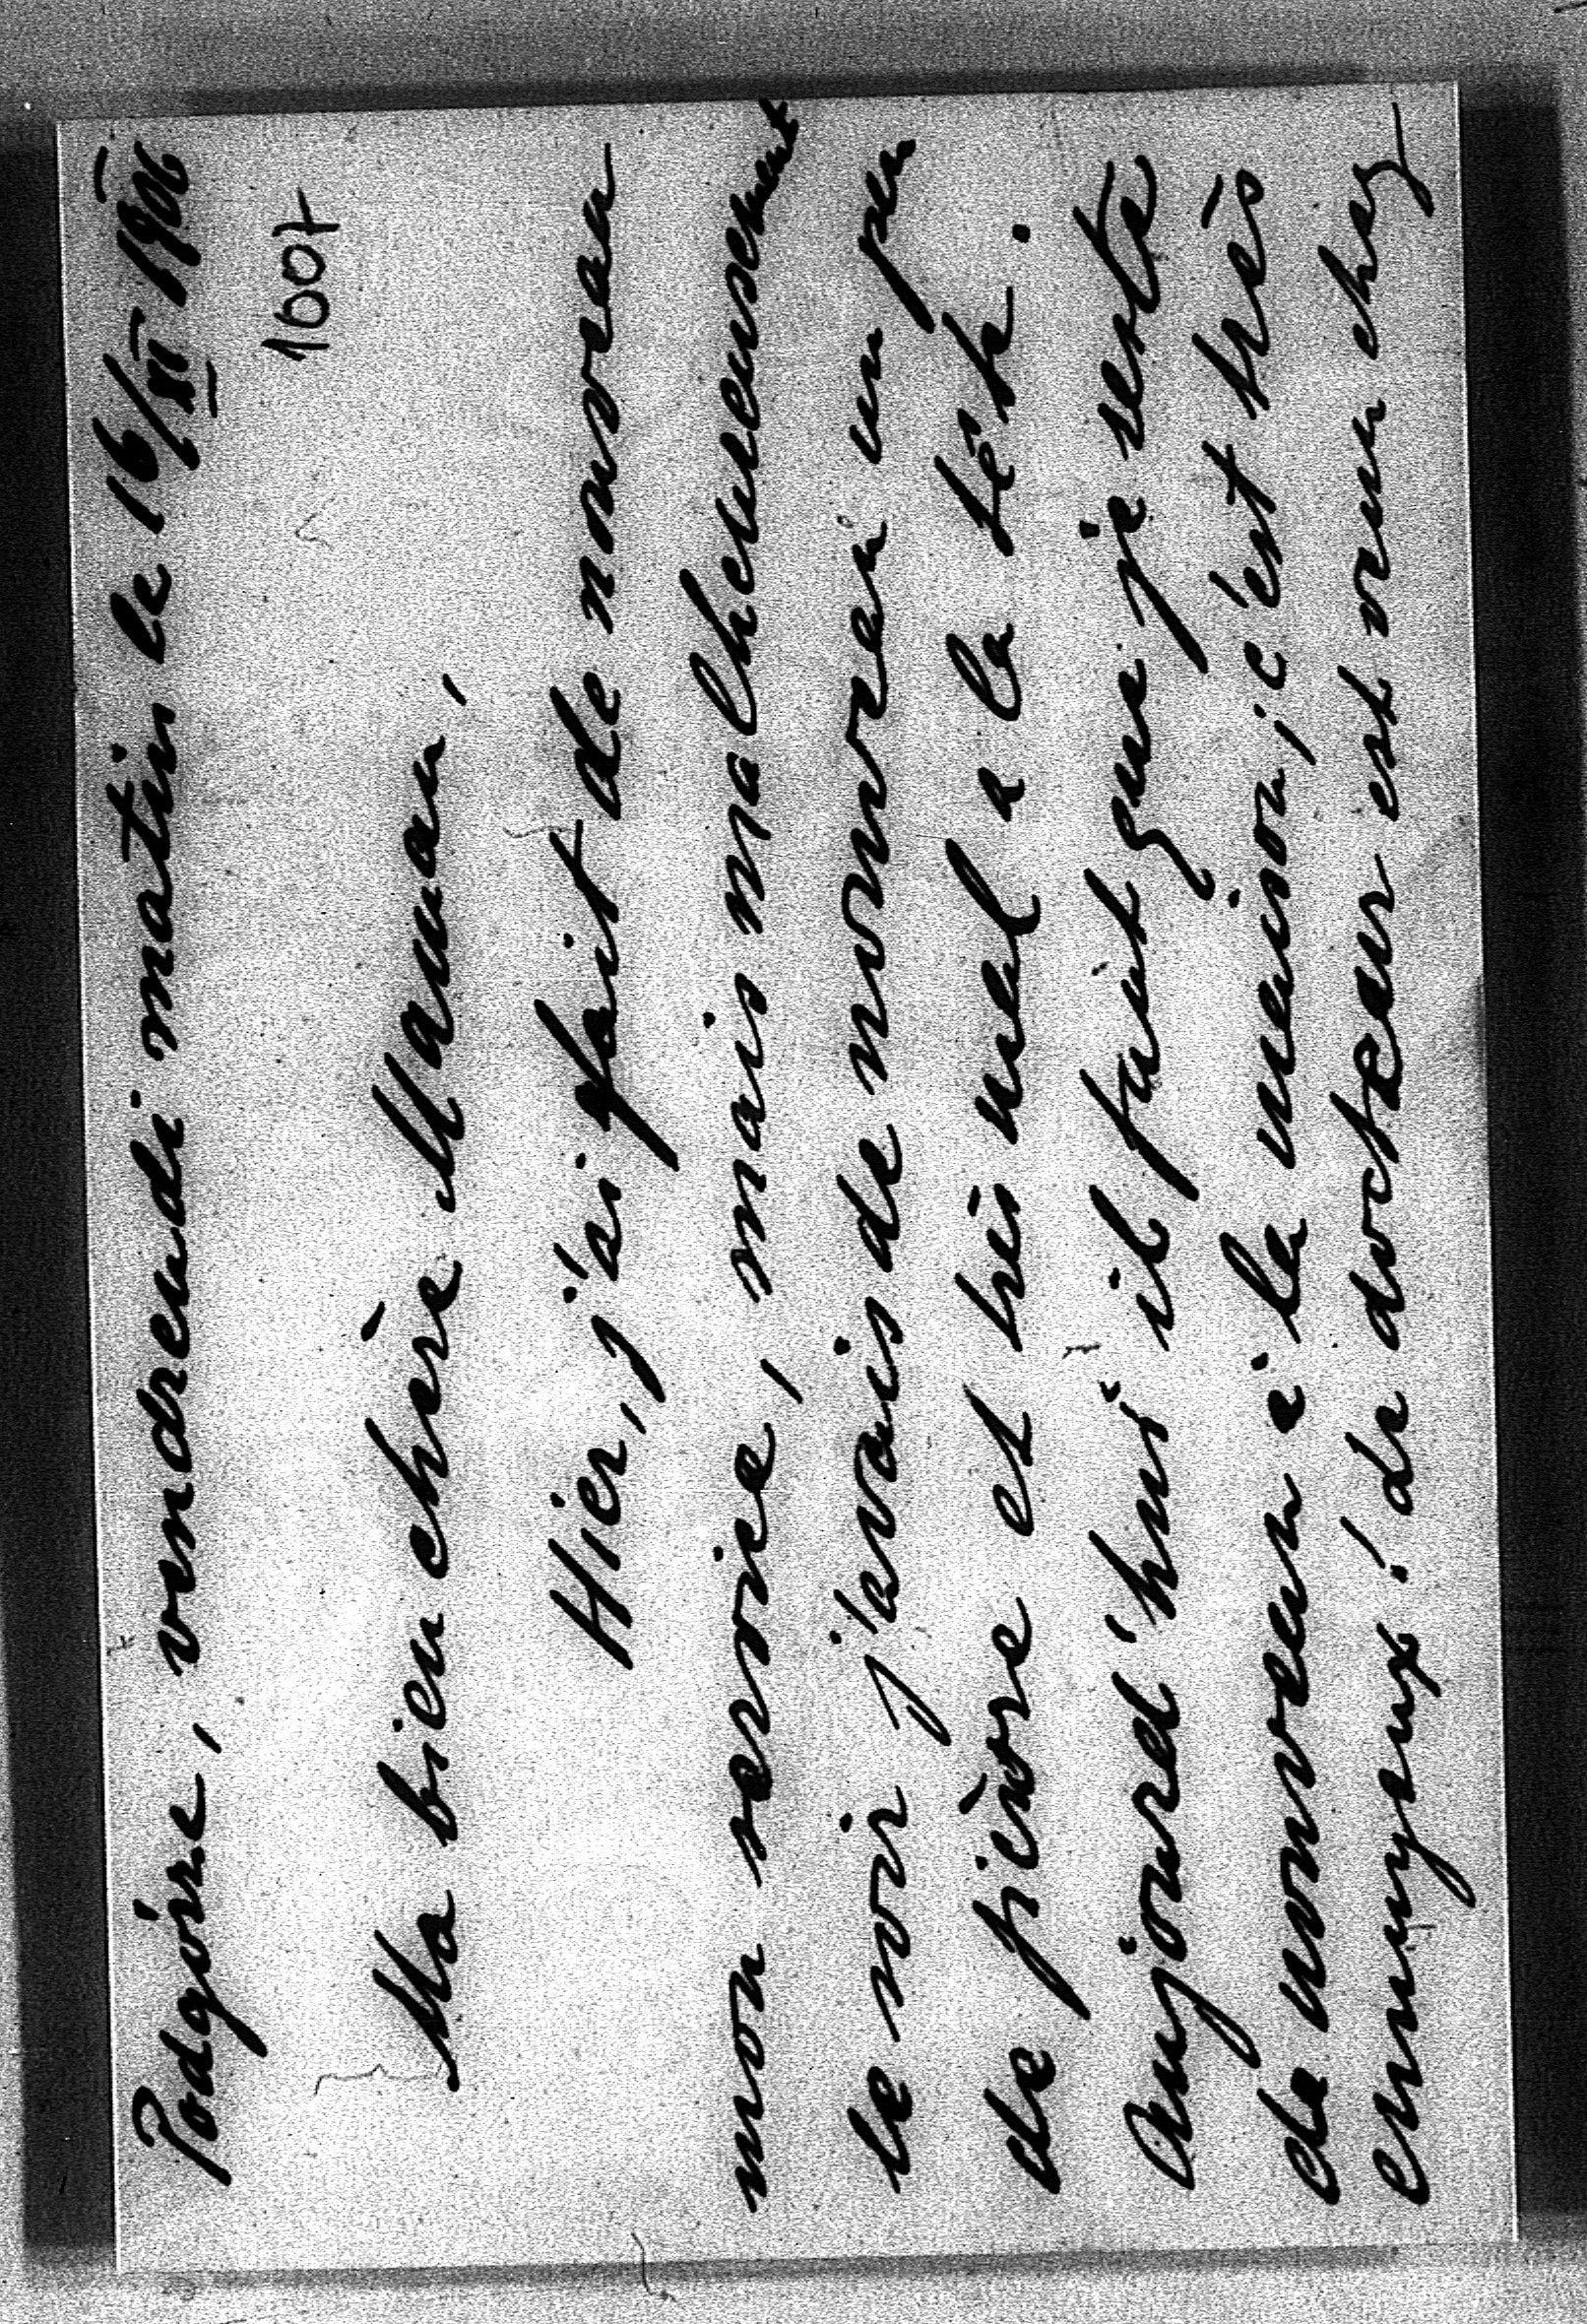 Podgórze, vendredi matin le 16/XI 1906
1007
Ma bien chère Maman,
Hier, j'ai fait de nouveau
mon service, mais malheureusement
le soir j'avais de nouveau un peu
de fièvre et très mal a la tête.
Aujourd'hui il faut que je reste
de nouveau à la maison; c'est très
ennuyeux! Le docteur est venu chez